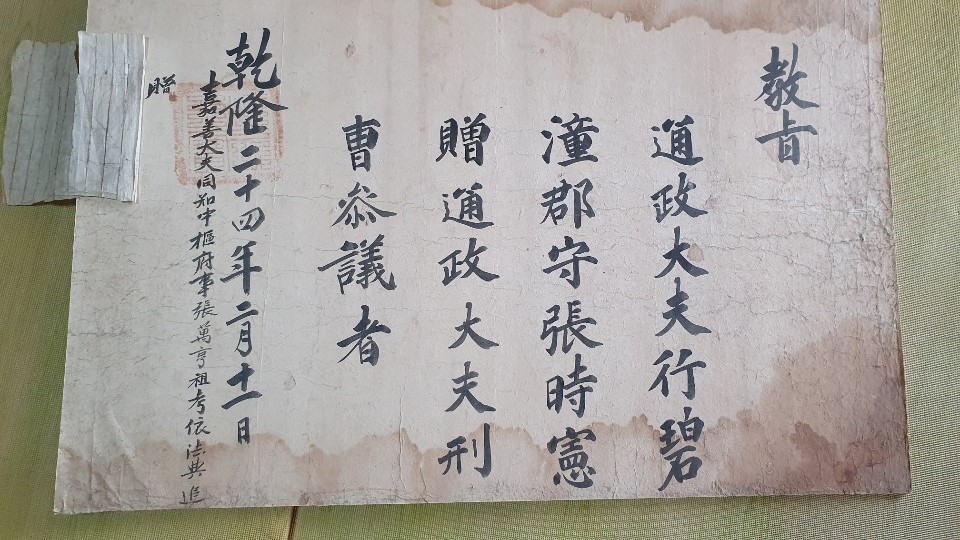 教旨
通政大夫行碧
潼郡守張時憲
贈通政大夫刑
曹參議者
乾隆二十四年二月十一日
嘉善大夫同知中樞府事張萬亨祖考依法典追
贈